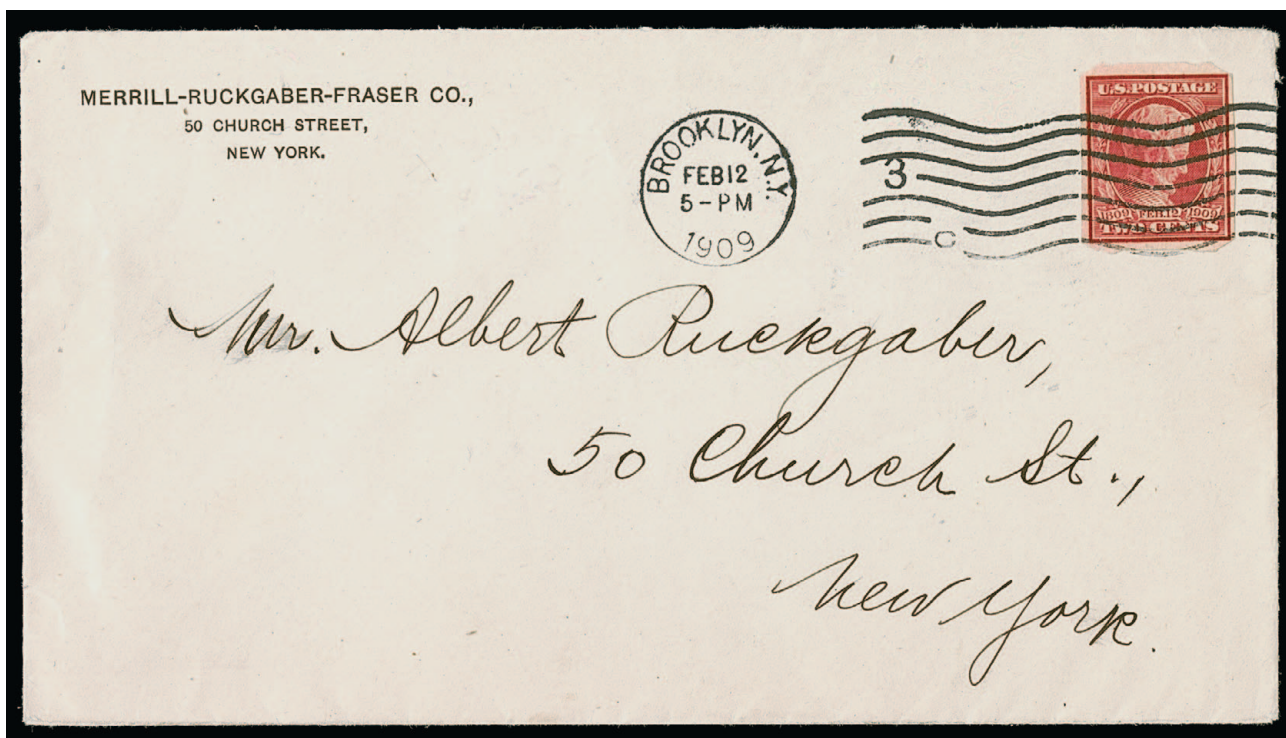 MERRILL-RUCKGABER-FRASER CO.,
50 CHURCH STREET,
NEW YORK.
BROOKLYN, N.Y.
FEB 12
5-PM
1909
3
C
U.S. POSTAGE
1809 FEB. 12 1909
TWO CENTS
Mr. Albert Ruckgaber,
50 Church St.,
New York.